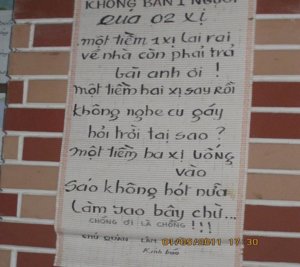 KHÔNG BÁN 1 NGƯỜI
QUA 02 XỊ
một tiềm 1 xị lai rai
về nhà còn phải trả
bài anh ơi !
một tiềm hai xị say rồi
không nghe cu gáy
hỏi trời tại sao ?
một tiềm ba xị uống
vào
Sáo không hót nữa
Làm sao bây chừ...
CHỐNG ĐI LÀ CHỐNG !!!
CHỦ QUÁN LÀM
Kính báo
01/05/2011 17:30